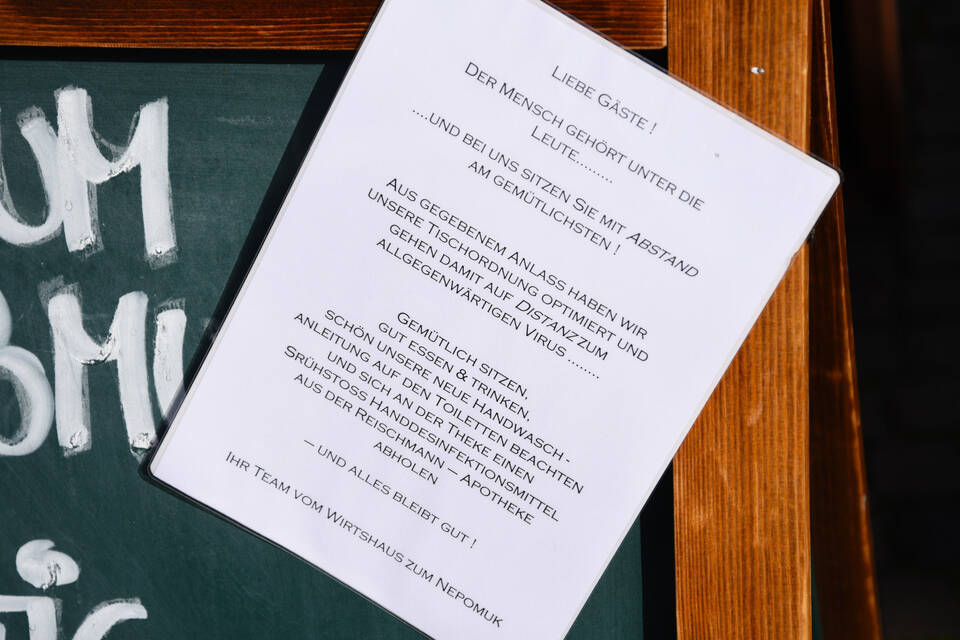 Liebe Gäste !
Der Mensch gehört unter die
Leute.........
....und bei uns sitzen Sie mit Abstand
am gemütlichsten !
Aus gegebenem Anlass haben wir
unsere Tischordnung optimiert und
gehen damit auf Distanz zum
allgegenwärtigen Virus ........
Gemütlich sitzen,
gut essen & trinken,
schön unsere neue Handwasch -
anleitung auf den Toiletten beachten
und sich an der Theke einen
Srühstoss Handdesinfektionsmittel
aus der Reischmann – Apotheke
abholen
– und alles bleibt gut !
Ihr Team vom Wirtshaus zum Nepomuk
UM
OMU